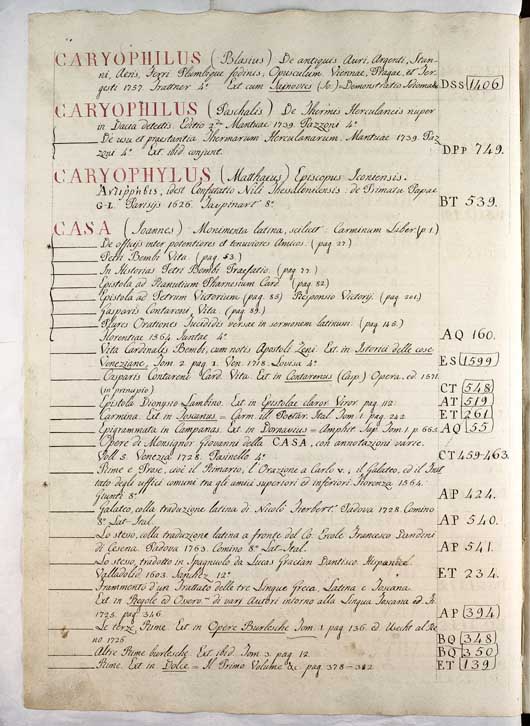 CARYOPHILUS (Blasius) De antiquis Auri, Argenti, Stan-
ni, Aeris, Ferri Plumbique fodinis, Opusculum Viennae, Pragae, et Ter-
gesti 1757 Trattner 4.° Ext cum (Jo:) Demonstratio DSS 1406
CARYOPHILUS (Paschalis) De Thermis Herculaneis nuper
in Dacia detectis Editio 2.a Mantuae 1739. Pazzoni 4.°
De usu et praestantia Thermarum Herculanarum. Mantuae 1739. Paz
zoni 4.° Ext ibid conjunt. DPP 749.
CARYOPHYLUS (Matthaeus) Episcopus Iconiensis.
idest Confutatio Nili Thessalonicensis: de Primatu Papae
G-L. Parisijs 1626. 8.° BT 539.
CASA (Joannes) Monimenta latina, scilect. Carminum Liber (p 1.)
De officijs inter potentiores et tenuiores Amicos. (pag 27.)
Petri Bembi Vita. (pag. 53.)
In Historias Petri Bembi Praefatio. (pag 77.)
Epistola ad Ranutium Pharnesium Card (pag 82)
Epistola ad Petrum Victorium (pag. 85) Responsio Victorij. (pag 201.)
Gasparis Contareni, Vita. (pag. 89.)
Plures Orationes Tucididis versae in sermonem latinum. (pag 145.)
Florentiae 1564 Juntae 4.° AQ 160.
Vita Cardinales Bembi, cum notis Apostoli Zeni. Ext. in Istorici delle cose
Veneziane, Tom 2 pag 1. Ven 1718. Lovisa 4.° ES 1599
Casparis Contareni Kard. Vita. Ext in Contarenus (Casp.) Opera. ed 1571
(in principio) CT 548
Epistola Dionysio Lambino. Ext in Epistolae claror Viror. pag 112. AT 519
Carmina. Ext in Toscanus = Carm. ill. Poetar. Ital Tom 1 pag. 242 ET 261
Epigrammata in Campanas. Ext in Dornavius = Amphit Sap. Tom 1 p 665. AQ 55
Opere di Monsignor Giovanni della CASA, con annotazioni varie.
Voll 5 Venezia 1728. Pasinello 4.° CT 459-463.
Rime e Prose, cioè il Rimario, l'Orazione a Carlo V., il Galateo, ed il Trat
tato degli uffici comuni tra gli amici superiori ed inferiori Fiorenza 1564.
Giunti 8.° AP 424.
Galateo, colla traduzione latina di Nicolò Padova 1728. Comino
8.° Lat-Ital. AP 540.
Lo stesso, colla traduzione latina a fronte del Co. Ercole Francesco Dandini
di Cesena. Padova 1763. Comino 8.° Lat-Ital. AP 541.
Lo stesso, tradotto in Spagnuolo da Lucas Gracian Dantisco Hispanice
Valladolid 1603. Sanchez 12.° ET 234.
Frammento d'un Trattato delle tre Lingue Greca, Latina e Toscana.
Ext. in Regole ed Osserv.ni di vari Autori intorno alla Lingua Toscana ed.
1725. pag 346 AP 394
Le terze Rime Ext in Opere Burlesche Tom 1 pag 136. ed Usecht al Re
no 1726 BQ 348
Altre Rime burlesche Ext ibid Tom 3 pag 12 BQ 350
Rime. Ext in Dolce = Il Primo Volume &c pag 378-382 ET 139